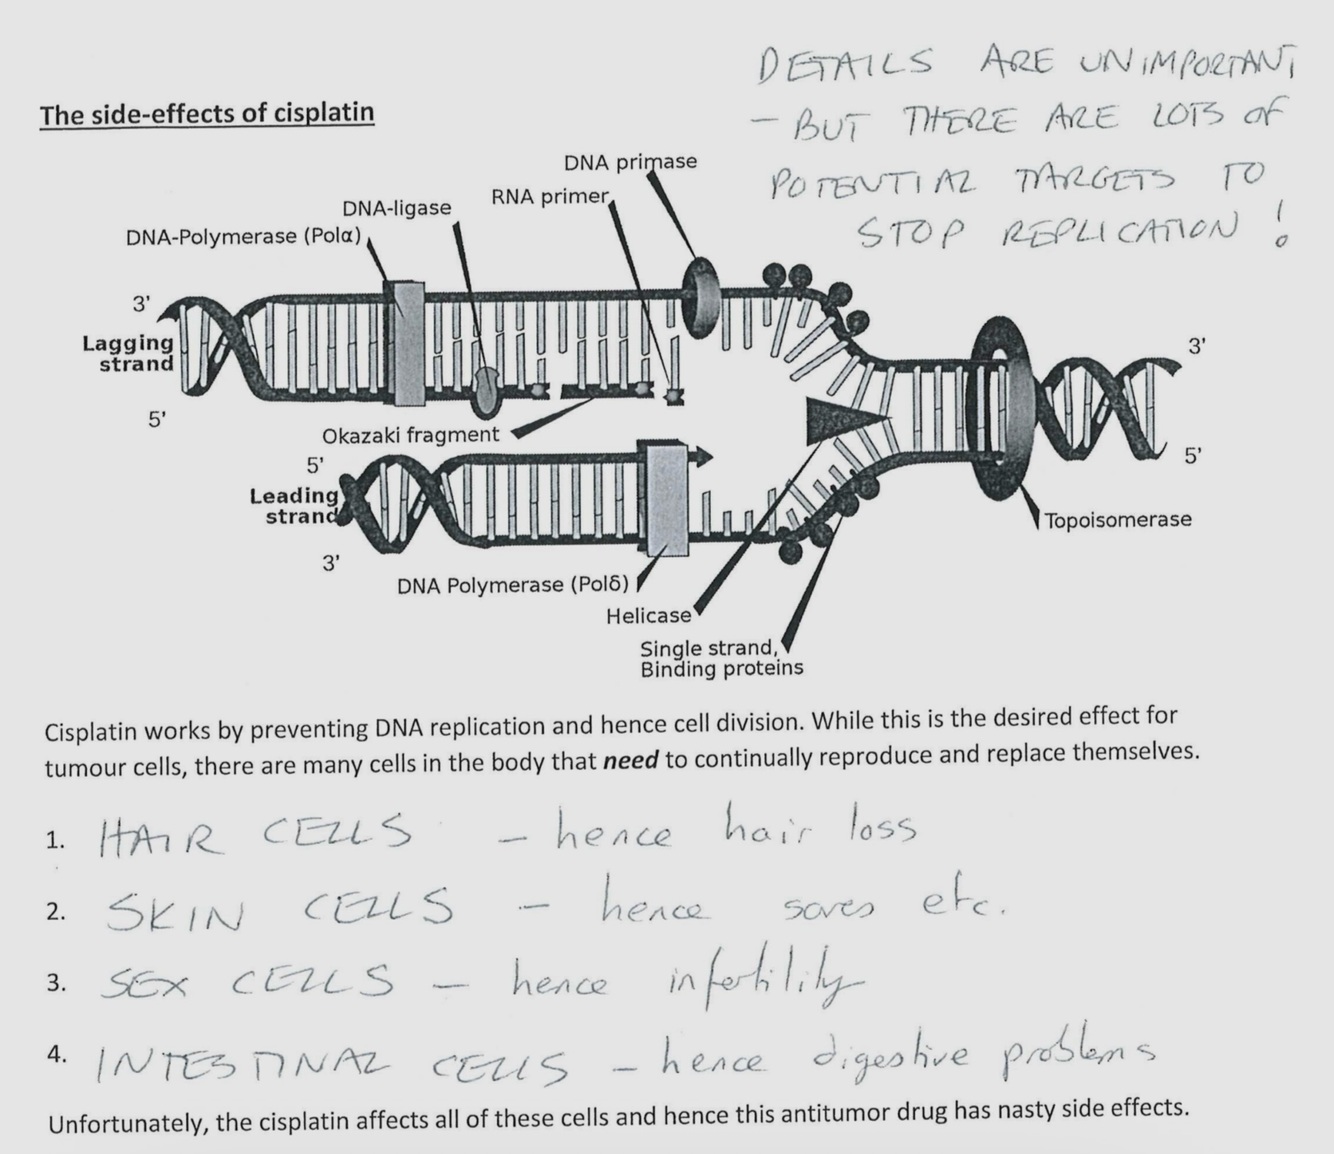 DETAILS ARE UNIMPORTANT
- BUT THERE ARE LOTS OF
POTENTIAL TARGETS TO
STOP REPLICATION!
The side-effects of cisplatin
DNA primase
RNA primer
DNA-ligase
DNA-Polymerase (Polα)
3'
Lagging
strand
5'
3'
5'
Okazaki fragment
5'
Leading
strand
3'
Topoisomerase
DNA Polymerase (Polδ)
Helicase
Single strand,
Binding proteins
Cisplatin works by preventing DNA replication and hence cell division. While this is the desired effect for
tumour cells, there are many cells in the body that need to continually reproduce and replace themselves.
1. HAIR CELLS - hence hair loss
2. SKIN CELLS - hence sores etc.
3. SEX CELLS - hence infertility
4. INTESTINAL CELLS - hence digestive problems
Unfortunately, the cisplatin affects all of these cells and hence this antitumor drug has nasty side effects.